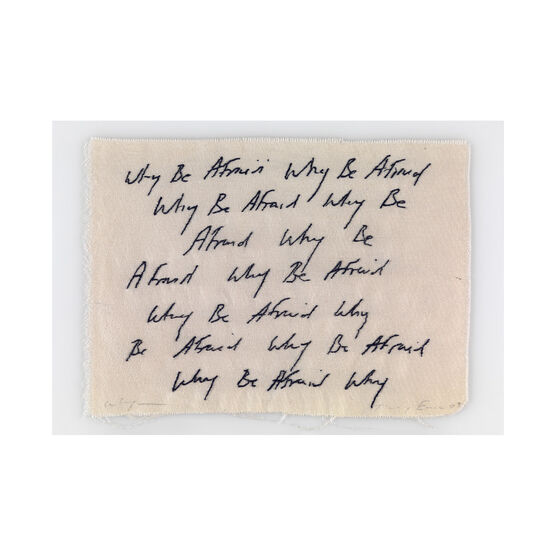 Why Be Afraid Why Be Afraid
Why Be Afraid Why Be
Afraid Why Be
Afraid Why Be Afraid
Why Be Afraid Why
Be Afraid Why Be Afraid
Why Be Afraid Why
Emin